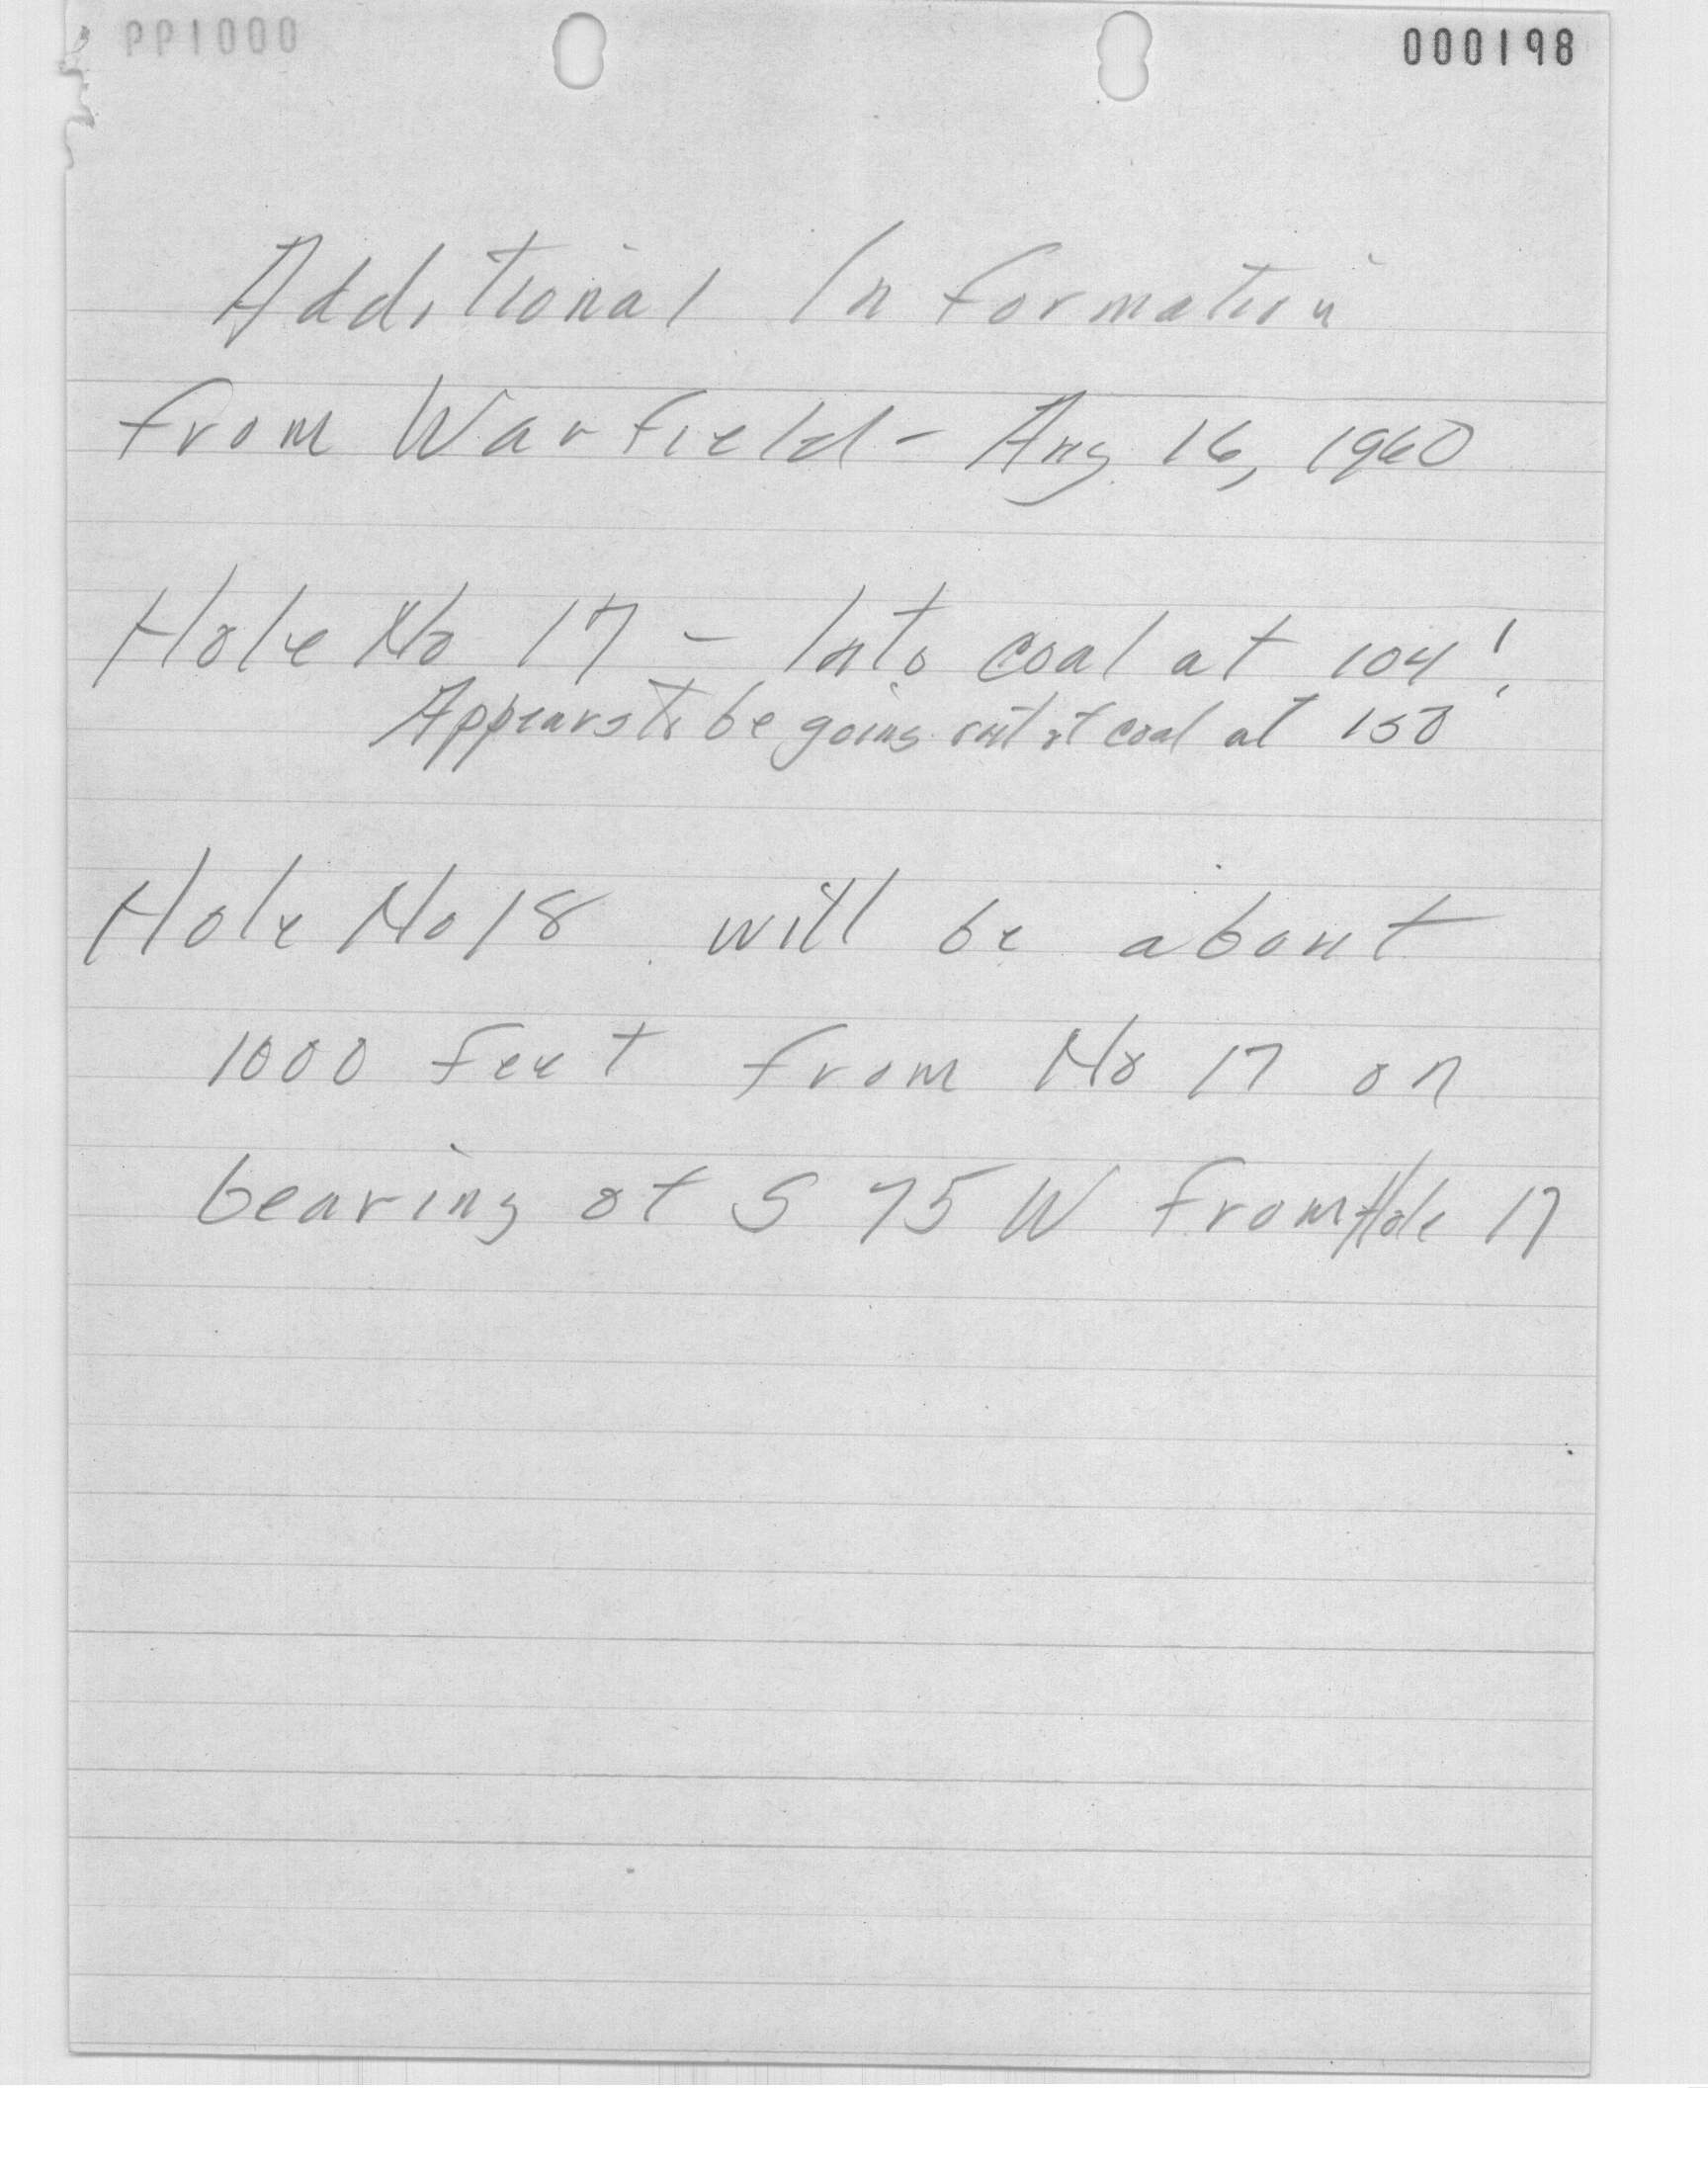 000198
Additional Information
from Warfield - Aug 16, 1960
Hole No 17 - Into coal at 104'
Appears to be going out of coal at 150'
Hole No 18 will be about
1000 feet from No 17 on
bearing of S 75 W from Hole 17